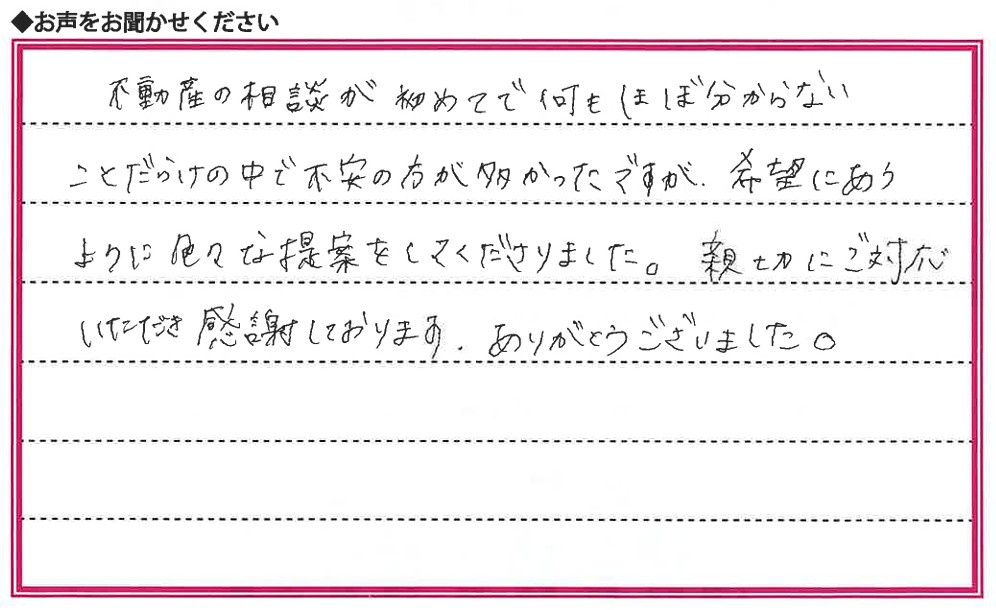 ◆お声をお聞かせください
不動産の相談が初めてで何もほぼ分からない
ことだらけの中で不安の方が多かったですが、希望にあう
ように色々な提案をしてくださりました。親切にご対応
いただき感謝しております。ありがとうございました。